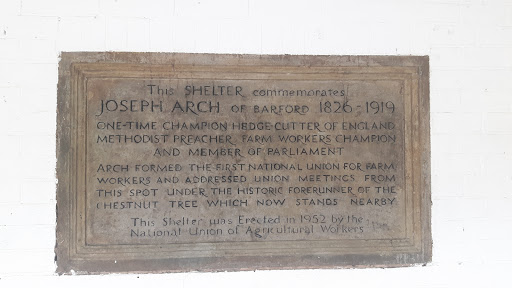 This SHELTER commemorates
JOSEPH ARCH OF BARFORD 1826-1919
ONE-TIME CHAMPION HEDGE CUTTER OF ENGLAND
METHODIST PREACHER, FARM WORKERS CHAMPION
AND MEMBER OF PARLIAMENT
ARCH FORMED THE FIRST NATIONAL UNION FOR FARM
WORKERS AND ADDRESSED UNION MEETINGS FROM
THIS SPOT UNDER THE HISTORIC FORERUNNER OF THE
CHESTNUT TREE WHICH NOW STANDS NEARBY
This Shelter was Erected in 1952 by the
National Union of Agricultural Workers